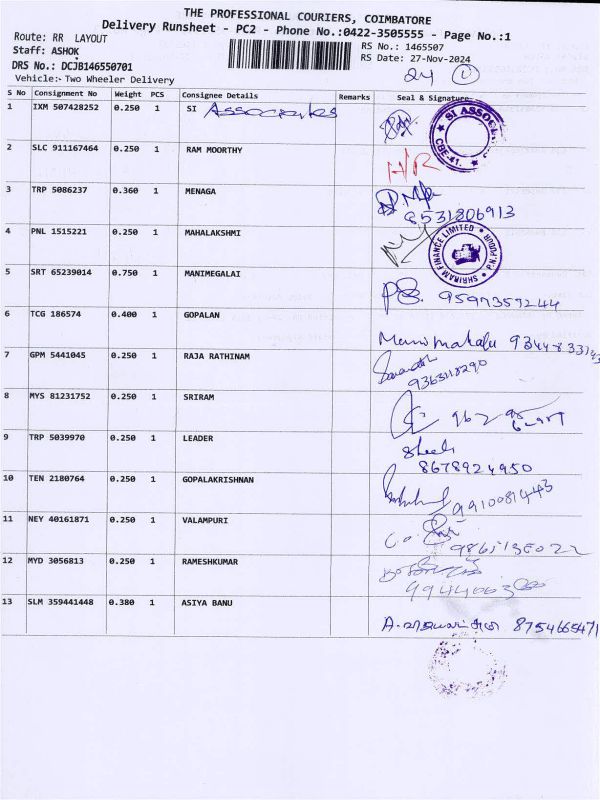 THE PROFESSIONAL COURIERS, COIMBATORE
Delivery Runsheet - PC2 - Phone No.:0422-3505555 - Page No.:1
Route: RR LAYOUT
RS No.: 1465507
Staff: ASHOK
RS Date: 27-Nov-2024
DRS No.: DCJB146550701
Vehicle:- Two Wheeler Delivery
24
S No Consignment No Weight PCS Consignee Details Remarks Seal & Signature
1 IXM 507428252 0.250 1 SI Associates
SI ASSOC
CBE-41.
2 SLC 911167464 0.250 1 RAM MOORTHY
H/R
3 TRP 5086237 0.360 1 MENAGA
8531806913
4 PNL 1515221 0.250 1 MAHALAKSHMI
SHRIRAM FINANCE LIMITED
5 SRT 65239014 0.750 1 MANIMEGALAI
9597357244
6 TCG 186574 0.400 1 GOPALAN
7 GPM 5441045 0.250 1 RAJA RATHINAM
9363118290
8 MYS 81231752 0.250 1 SRIRAM
9 TRP 5039970 0.250 1 LEADER
8678924950
10 TEN 2180764 0.250 1 GOPALAKRISHNAN
9910081443
11 NEY 40161871 0.250 1 VALAMPURI
12 MYD 3056813 0.250 1 RAMESHKUMAR
13 SLM 359441448 0.380 1 ASIYA BANU
8754665471